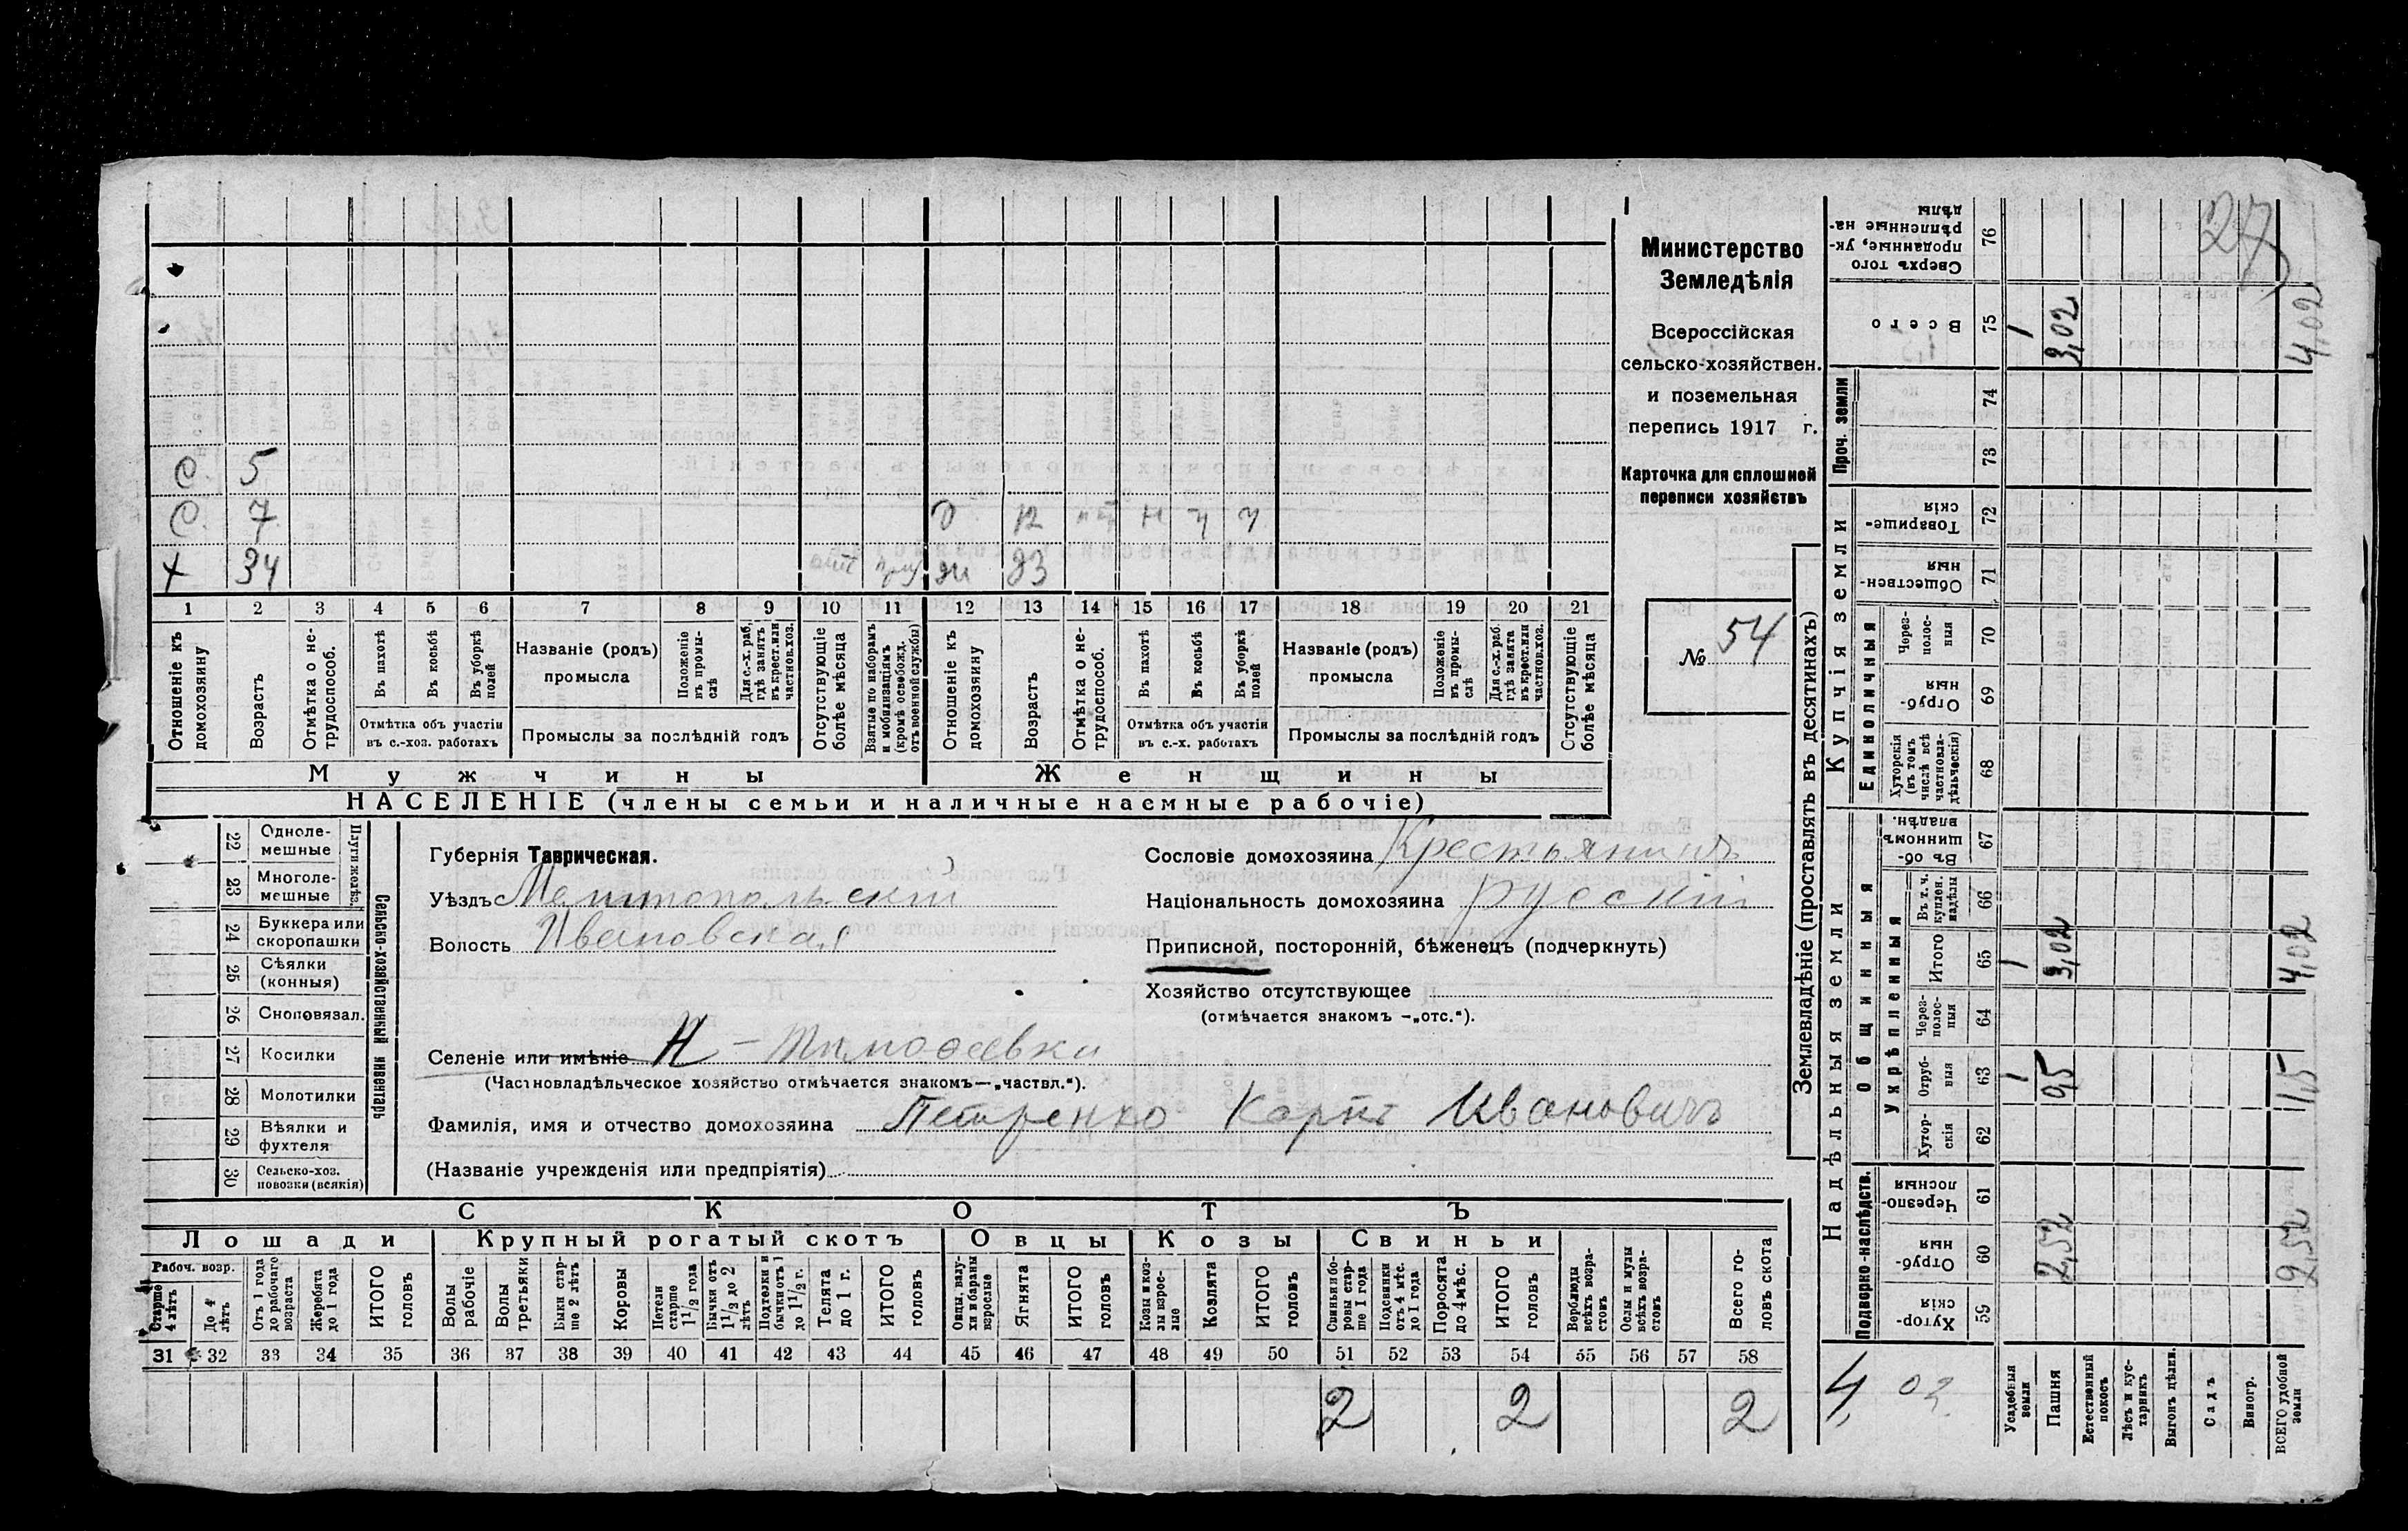 27
Министерство
Земледѣлія
Всероссійская
сельско-хозяйствен.
и поземельная
перепись 1917 г.
Карточка для сплошной
переписи хозяйствъ
№ 54
С. 5
С. 7 12 н
х 34 отс 33
1 2 3 4 5 6 7 8 9 10 11 12 13 14 15 16 17 18 19 20 21
Отношеніе къ домохозяину
Возрастъ
Отмѣтка о не-трудоспособ.
Въ пахотѣ
Въ косьбѣ
Въ уборкѣ полей
Отмѣтка объ участіи въ с.-хоз. работахъ
Названіе (родъ) промысла
Положеніе въ промы-слѣ
Для с.-х. раб, гдѣ занятъ въ крест. или частнов. хоз.
Промыслы за послѣдній годъ
Отсутствующіе болѣе мѣсяца
Взятые по наборамъ и мобилизаціямъ (кромѣ освобожд. отъ военной службы)
Отношеніе къ домохозяину
Возрастъ
Отмѣтка о не-трудоспособ.
Въ пахотѣ
Въ косьбѣ
Въ уборкѣ полей
Отмѣтка объ участіи въ с.-х. работахъ
Названіе (родъ) промысла
Положеніе въ промы-слѣ
Для с.-х. раб. гдѣ занята въ крест. или частнов. хоз.
Промыслы за послѣдній годъ
Отсутствующіе болѣе мѣсяца
Мужчины Женщины
НАСЕЛЕНІЕ (члены семьи и наличные наемные рабочіе)
Сельско-хозяйственный инвентарь
Плуги желѣз.
22 Одноле-мешные
23 Многоле-мешные
24 Буккера или скоропашки
25 Сѣялки (конныя)
26 Сноповязал.
27 Косилки
28 Молотилки
29 Вѣялки и фухтеля
30 Сельско-хоз. повозки (всякія)
Губернія Таврическая.
Уѣздъ Мелитопольскій
Волость Ивановская
Сословіе домохозяина Крестьянинъ
Національность домохозяина русскій
Приписной, посторонній, бѣженецъ (подчеркнуть)
Хозяйство отсутствующее
(отмѣчается знакомъ —„отс.“).
Селеніе или имѣніе Н-Тимофеевка
(Частновладѣльческое хозяйство отмѣчается знакомъ—„частвл.“).
Фамилія, имя и отчество домохозяина Петренко Карпъ Ивановичъ
(Названіе учрежденія или предпріятія)
СКОТЪ
Лошади Крупный рогатый скотъ Овцы Козы Свиньи
Рабоч. возр.
Старше 4 лѣтъ
До 4 лѣтъ
Отъ 1 года до рабочаго возраста
Жеребята до 1 года
ИТОГО головъ
Волы рабочіе
Волы третьяки
Быки стар-ше 2 лѣтъ
Коровы
Нетели старше 1½ года
Бычки отъ 1½ до 2 лѣтъ
Подтелки и бычки отъ 1 до 1½ г.
Телята до 1 г.
ИТОГО головъ
Овцы, валу-хи и бараны взрослые
Ягнята
ИТОГО головъ
Козы и коз-лы взрос-лые
Козлята
ИТОГО головъ
Свиньи и бо-ровы стар-ше 1 года
Подсвинки отъ 4 мѣс. до 1 года
Поросята до 4 мѣс.
ИТОГО головъ
Верблюды всѣхъ возра-стовъ
Ослы и мулы всѣхъ возра-стовъ
Всего го-ловъ скота
31 32 33 34 35 36 37 38 39 40 41 42 43 44 45 46 47 48 49 50 51 52 53 54 55 56 57 58
2 2 2
Землевладѣніе (проставлять въ десятинахъ)
Надѣльныя земли
Купчія земли
Проч. земли
Подворно-наслѣдств.
Общинныя
Укрѣпленныя
Единоличныя
Хутор-скія 59
Отруб-ныя 60
Черезпо-лосныя 61
Хутор-скія 62
Отруб-ныя 63
Через-полос-ныя 64
Итого 65
Въ т. ч. куплен. надѣлы 66
Въ об-щинномъ владѣн. 67
Хуторскія (въ томъ числѣ всѣ частновла-дѣльческія) 68
Отруб-ныя 69
Через-полос-ныя 70
Обществен-ныя 71
Товарище-скія 72
73
74
Всего 75
Сверхъ того проданные, ук-рѣпленные на-дѣлы 76
4,02
Усадебныя земли 1 1 1
Пашня 2,52 0,5 3,02 3,02
Естественный покосъ
Лѣсъ и кус-тарникъ
Выгонъ цѣлин.
Садъ
Виногр.
ВСЕГО удобной земли 2,52 1,5 4,02 4,02